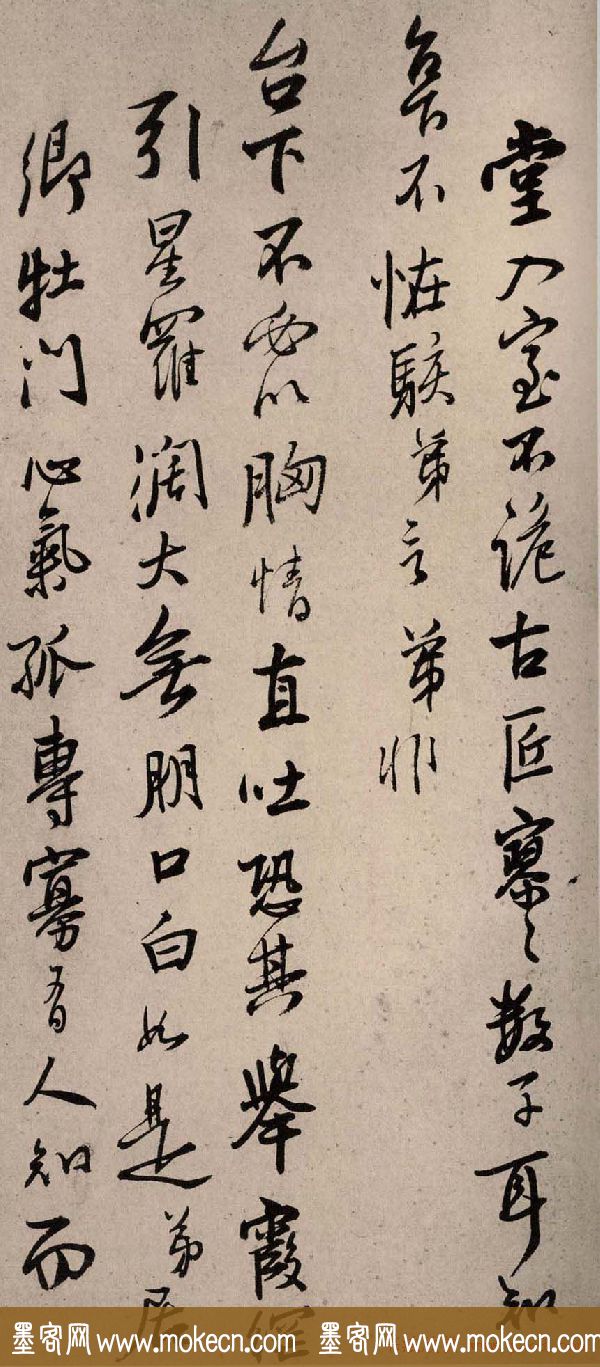 堂入室不诡古匠寥々数子耳知
台下不怪骇弟言弟非
台下不必以胸情直吐恐其举霞
引星罗阔大無朋口白如是弟居
卿牡门心氣孤專寡有人知而
墨客网 www.mokecn.com 墨客网 www.mokecn.com